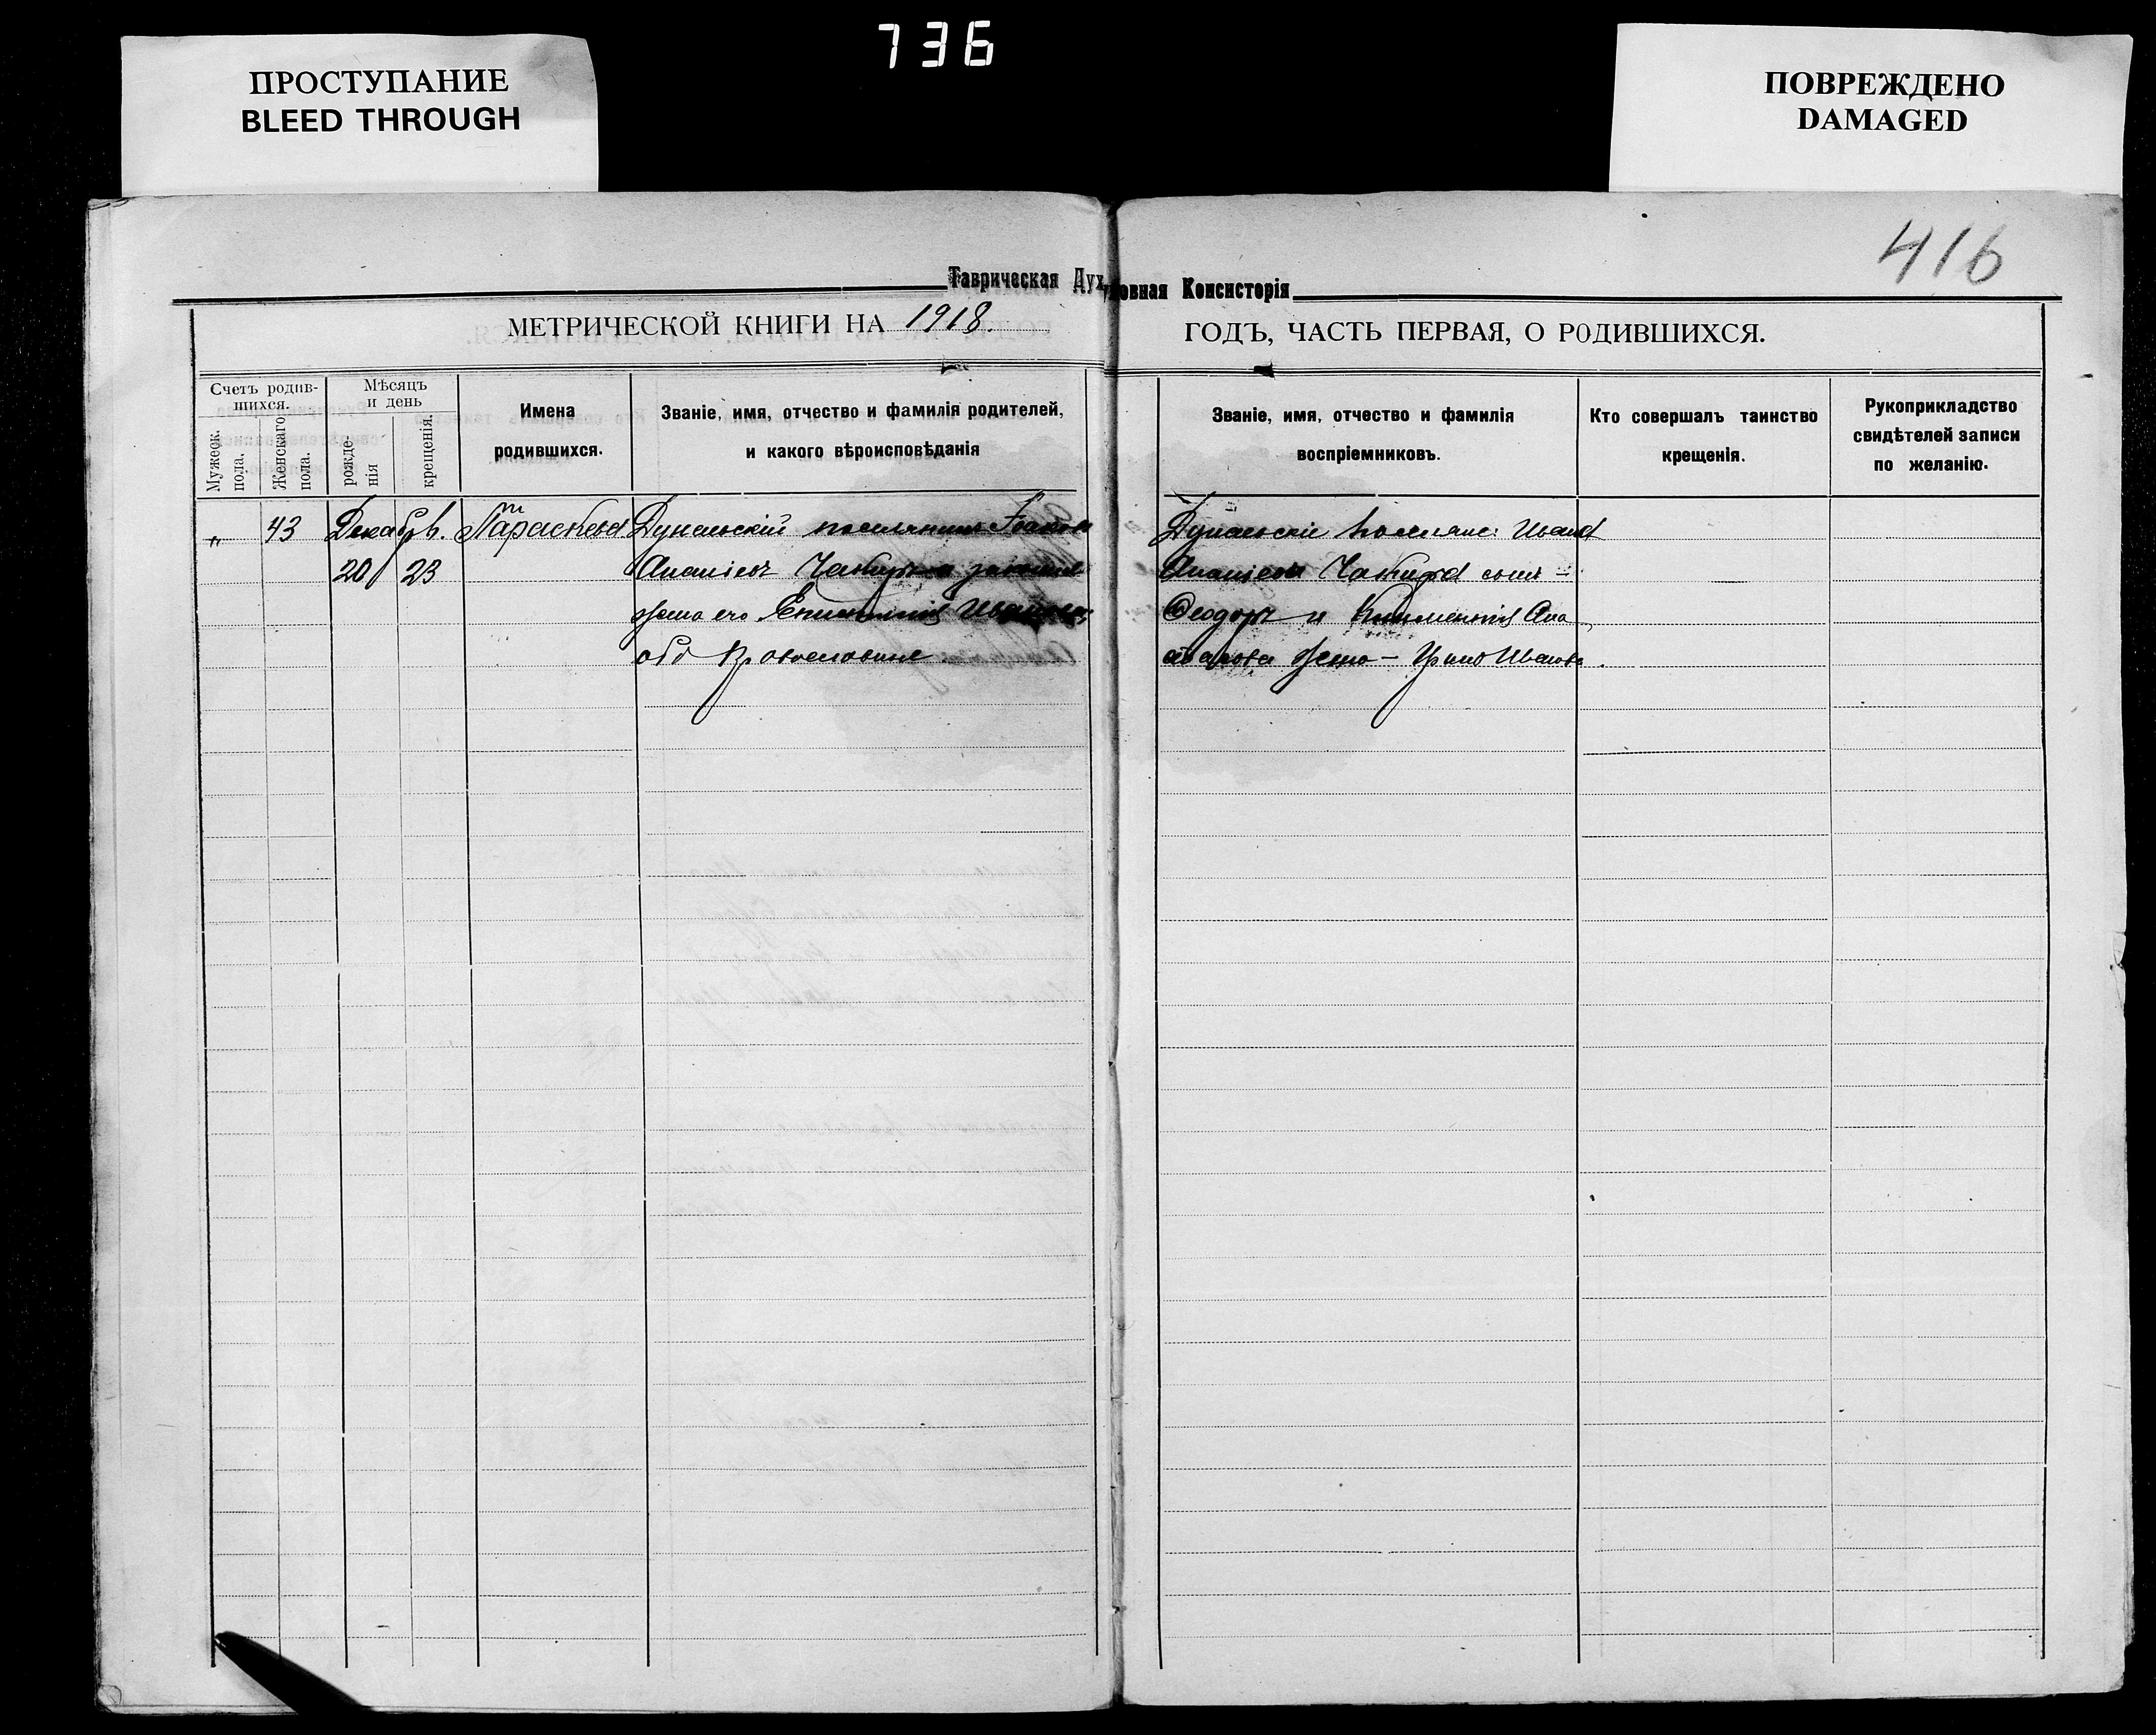 736
ПРОСТУПАНИЕ
BLEED THROUGH
ПОВРЕЖДЕНО
DAMAGED
416
Таврическая Духовная Консисторія
МЕТРИЧЕСКОЙ КНИГИ НА 1918. ГОДЪ, ЧАСТЬ ПЕРВАЯ, О РОДИВШИХСЯ.
Счетъ родив-
шихся.
Мужеск.
пола.
Женскаго
пола.
Мѣсяцъ
и день
рожде-
нія
крещенія.
Имена
родившихся.
Званіе, имя, отчество и фамилія родителей,
и какого вѣроисповѣданія
Званіе, имя, отчество и фамилія
воспріемниковъ.
Кто совершалъ таинство
крещенія.
Рукоприкладство
свидѣтелей записи
по желанію.
„ 43 Декабрь. Параскева
20 23
Дунаевскій поселянинъ Іоаковъ
Ананіевъ и законная
жена его Ивановна
оба православные
Дунаевскіе поселяне: Ивана
Ананіева сынъ –
Феодоръ и
жена – Ирина Иванова.